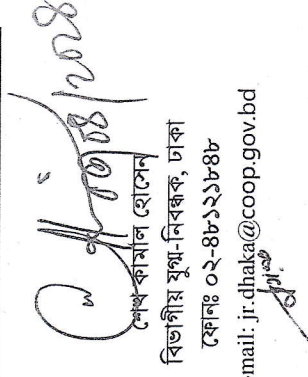 শেখ কামাল হোসেন
বিভাগীয় যুগ্ম-নিবন্ধক, ঢাকা
ফোনঃ ০২-৪৮১২১৮৪৮
mail: jr.dhaka@coop.gov.bd